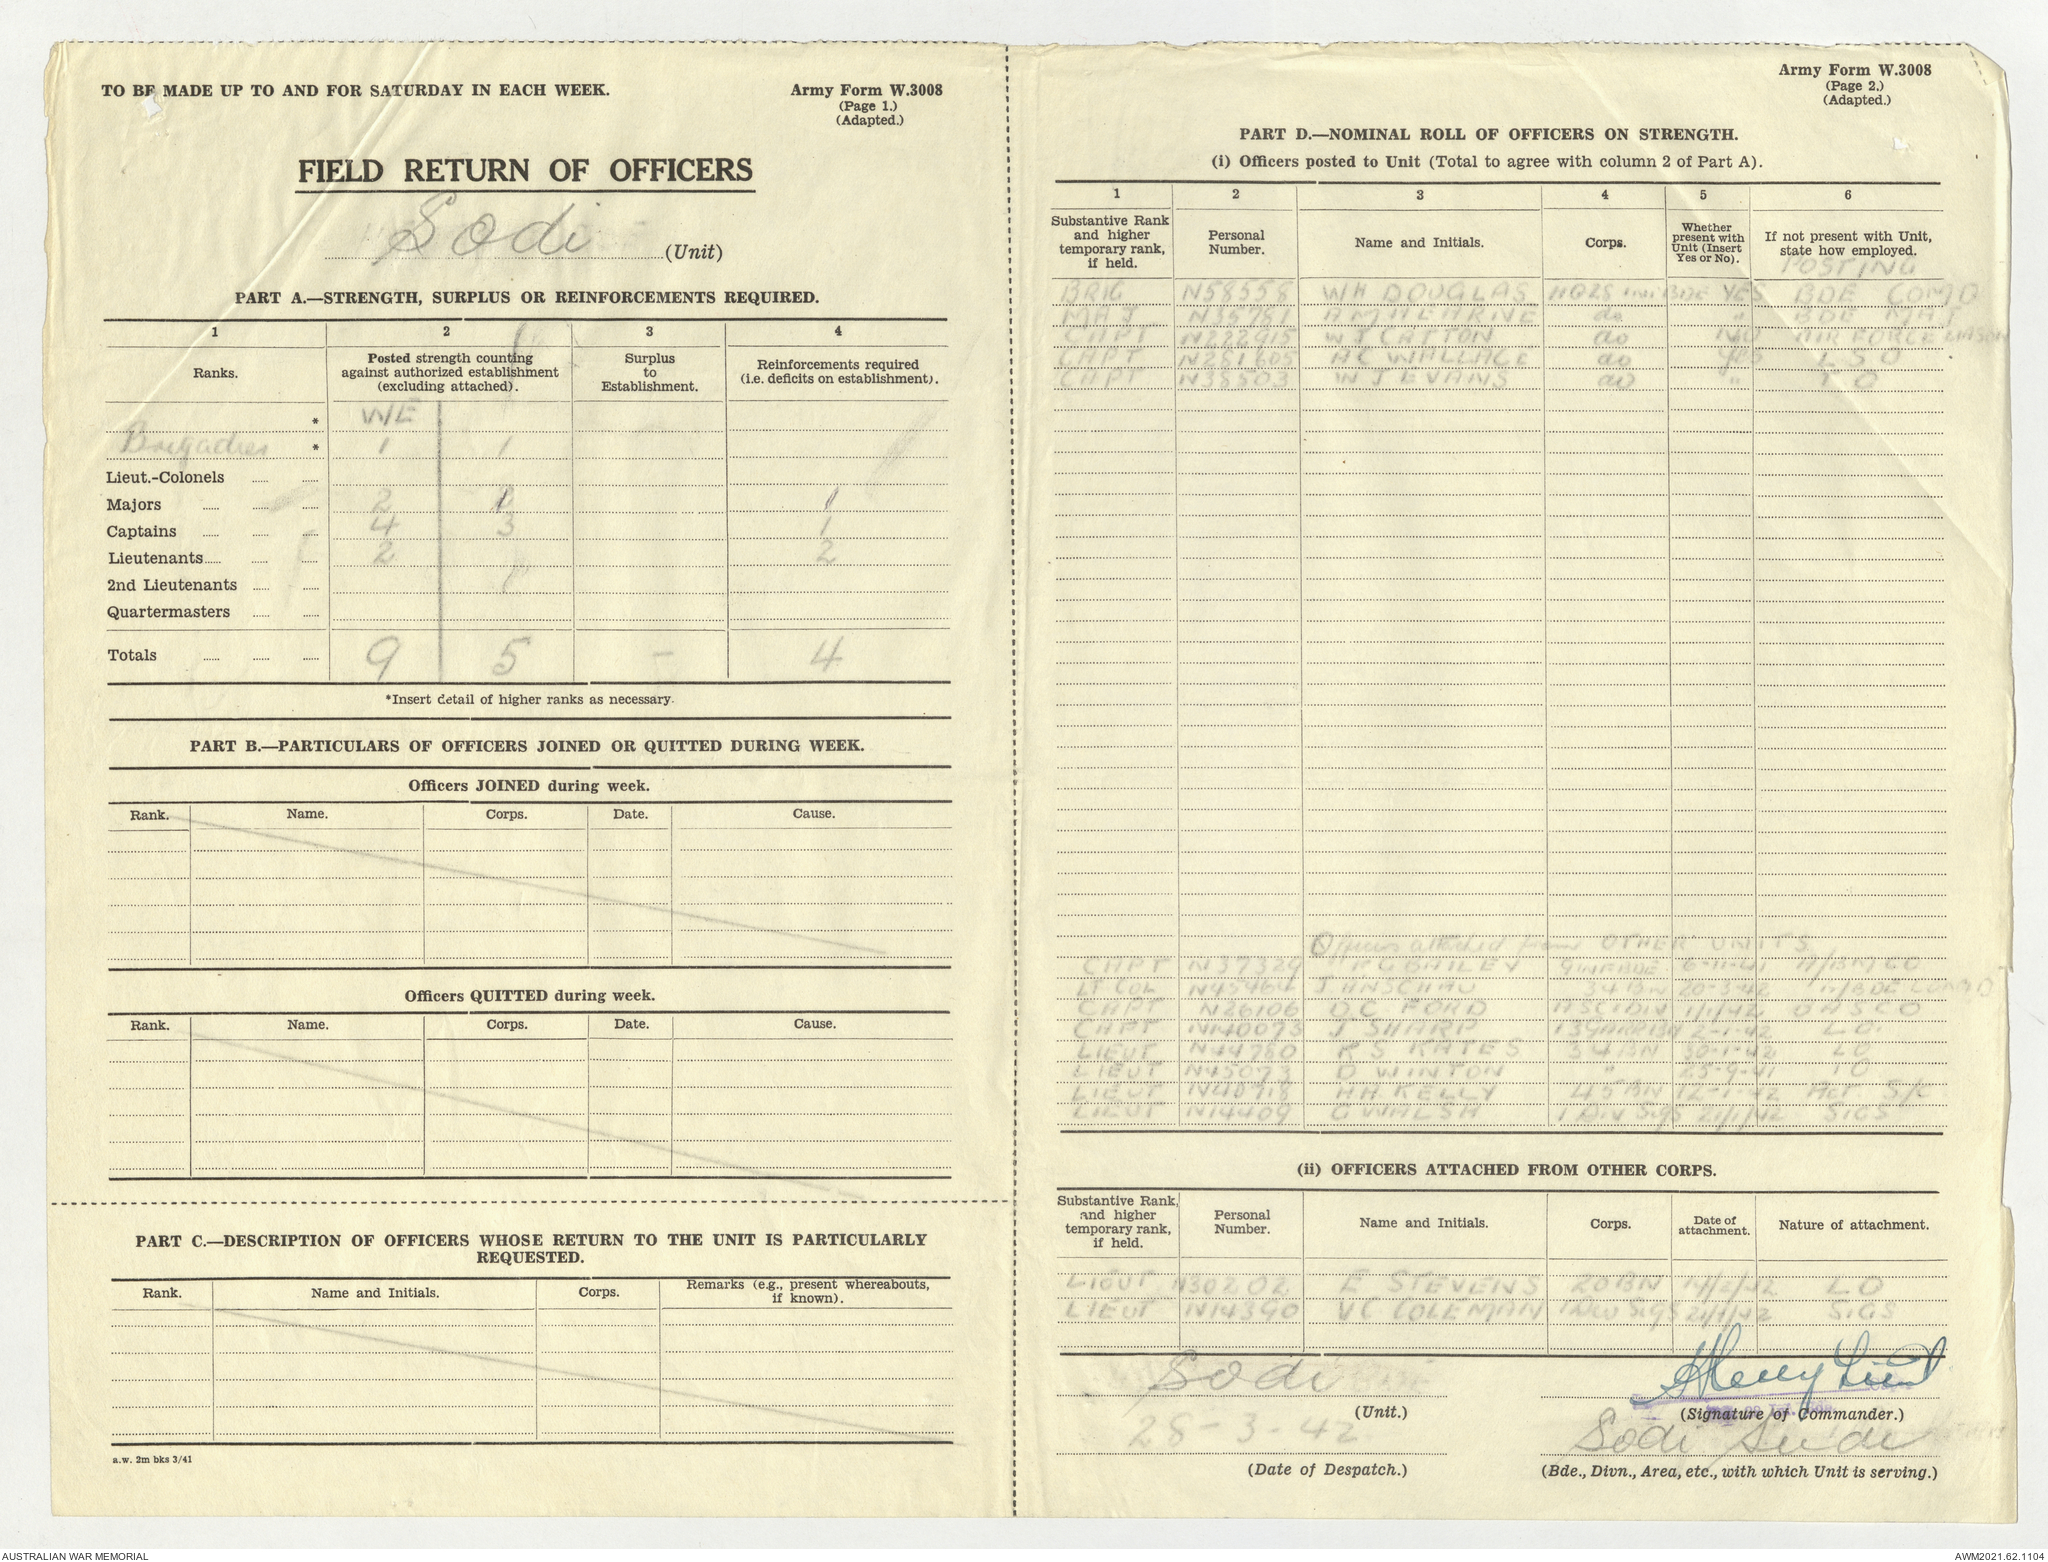 TO BE MADE UP TO AND FOR SATURDAY IN EACH WEEK.
Army Form W.3008
(Page 1.)
(Adapted.)
FIELD RETURN OF OFFICERS
Sodi (Unit)
PART A.—STRENGTH, SURPLUS OR REINFORCEMENTS REQUIRED.
1 2 3 4
Ranks. Posted strength counting against authorized establishment (excluding attached). Surplus to Establishment. Reinforcements required (i.e. deficits on establishment).
* W/E
Brigadier * 1 1
Lieut.-Colonels
Majors 2 1 1
Captains 4 3 1
Lieutenants 2 2
2nd Lieutenants
Quartermasters
Totals 9 5 – 4
*Insert detail of higher ranks as necessary.
PART B.—PARTICULARS OF OFFICERS JOINED OR QUITTED DURING WEEK.
Officers JOINED during week.
Rank. Name. Corps. Date. Cause.
Officers QUITTED during week.
Rank. Name. Corps. Date. Cause.
PART C.—DESCRIPTION OF OFFICERS WHOSE RETURN TO THE UNIT IS PARTICULARLY
REQUESTED.
Rank. Name and Initials. Corps. Remarks (e.g., present whereabouts, if known).
a.w. 2m bks 3/41
Army Form W.3008
(Page 2.)
(Adapted.)
PART D.—NOMINAL ROLL OF OFFICERS ON STRENGTH.
(i) Officers posted to Unit (Total to agree with column 2 of Part A).
1 2 3 4 5 6
Substantive Rank and higher temporary rank, if held. Personal Number. Name and Initials. Corps. Whether present with Unit (Insert Yes or No). If not present with Unit, state how employed.
POSTING
BRIG N58558 WH DOUGLAS BDE YES BDE COMD
MAJ N35781 do " BDE MAJ
CAPT N222915 WJ CATTON do NO AIR FORCE LIAISON
CAPT N281605 AC WALLACE do Yes LSO
CAPT N38503 WJ EVANS do " TO
Officers attached from OTHER UNITS
CAPT N37329 RG BAILEY 9 INF BDE 6-11-41
LT COL N45464 34 BN 20-3-42
CAPT N26106 DC FORD 1/1/42 OASCO
CAPT N140073 J SHARP 2-1-42 LO
LIEUT N44780 RS KATES 34 BN 30-1-42 LO
LIEUT N45073 D WINTON " 25-9-41 IO
LIEUT N40718 HH KELLY 45 BN 12-1-42 Act S/C
LIEUT N14409 G WALSH 1 Div Sigs 21/1/42 SIGS
(ii) OFFICERS ATTACHED FROM OTHER CORPS.
Substantive Rank, and higher temporary rank, if held. Personal Number. Name and Initials. Corps. Date of attachment. Nature of attachment.
LIEUT N30202 E STEVENS 20 BN 14/2/42 LO
LIEUT N14390 VC COLEMAN Sigs 21/1/42 SIGS
Sodi
(Unit.)
(Signature of Commander.)
28-3-42
(Date of Despatch.)
Sodi
(Bde., Divn., Area, etc., with which Unit is serving.)
AUSTRALIAN WAR MEMORIAL
AWM2021.62.1104